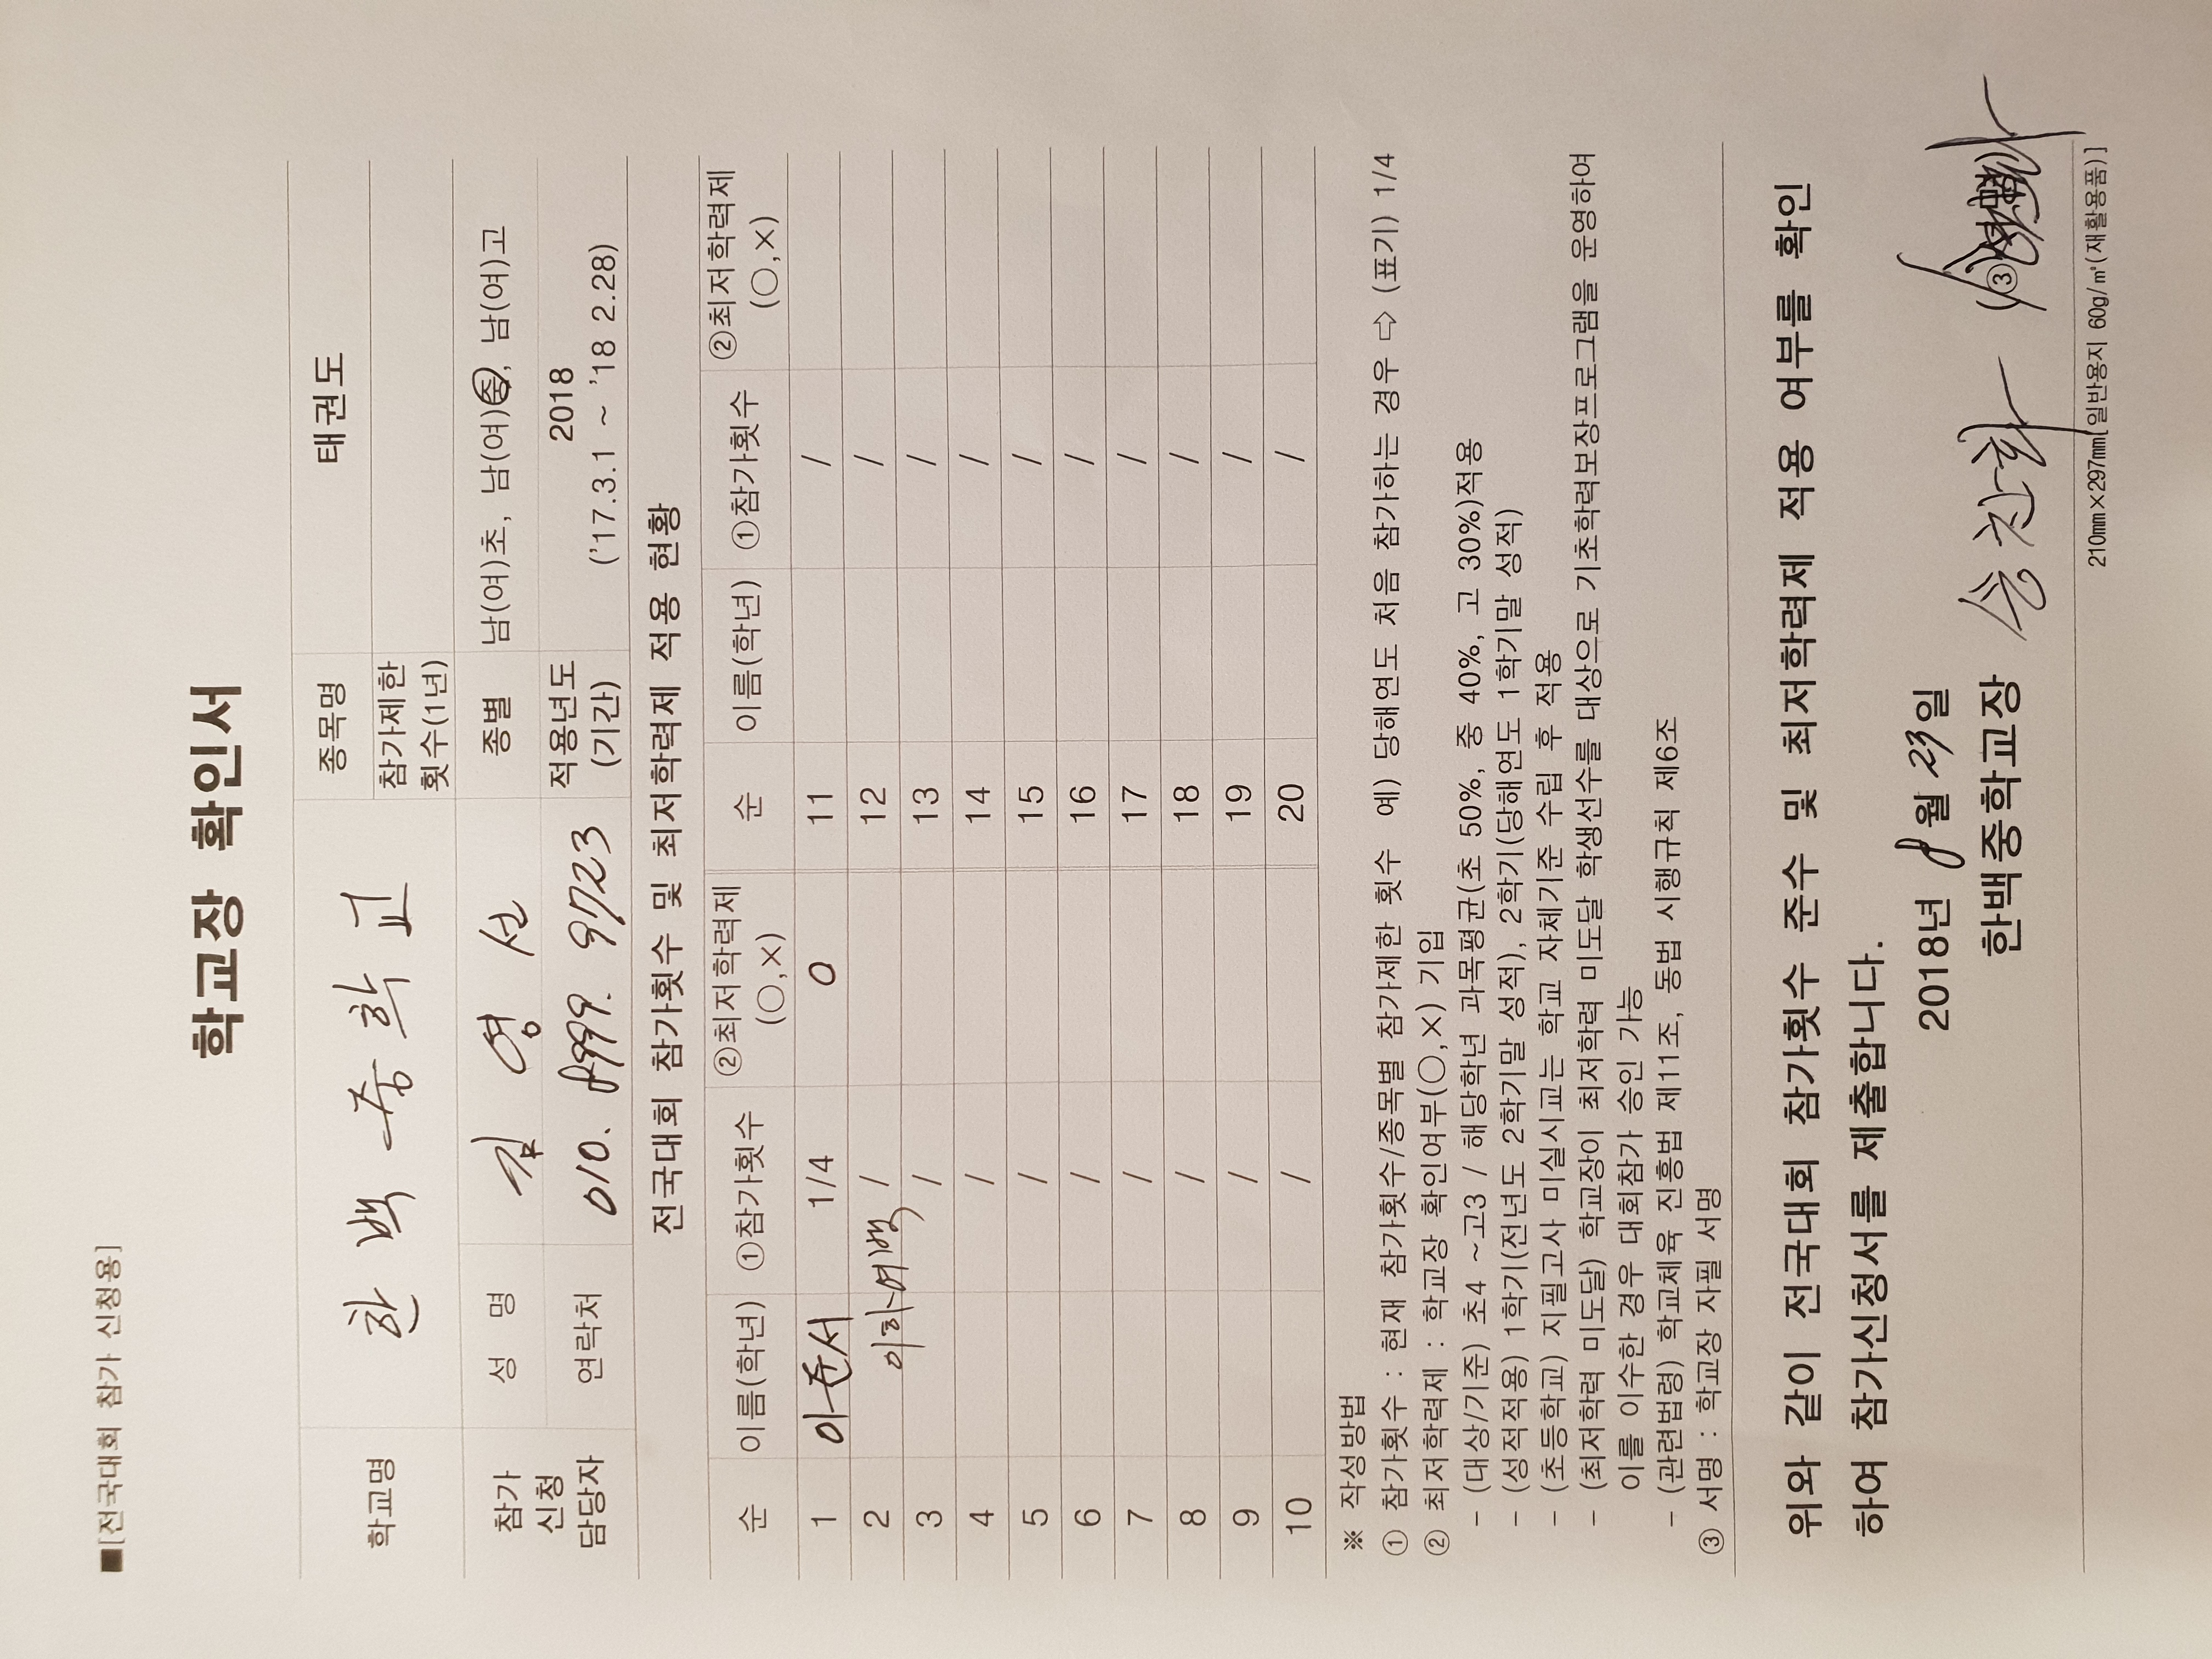 ■[전국대회 참가 신청용]
학교장 확인서
학교명 한 백 중 학 교 종목명 태권도
참가제한 횟수(1년)
참가 신청 담당자 성 명 김 영 선 종별 남(여)초, 남(여)중, 남(여)고
연락처 010. 8999. 9723 적용년도 (기간) 2018 ('17.3.1 ~ '18 2.28)
전국대회 참가횟수 및 최저학력제 적용 현황
순 이름(학년) ①참가횟수 ②최저학력제 (○,×) 순 이름(학년) ①참가횟수 ②최저학력제 (○,×)
1 이준서 1/4 O 11 /
2 이하여백 / 12 /
3 / 13 /
4 / 14 /
5 / 15 /
6 / 16 /
7 / 17 /
8 / 18 /
9 / 19 /
10 / 20 /
※ 작성방법
① 참가횟수 : 현재 참가횟수/종목별 참가제한 횟수 예) 당해연도 처음 참가하는 경우 ⇨ (표기) 1/4
② 최저학력제 : 학교장 확인여부(○,×) 기입
- (대상/기준) 초4 ~고3 / 해당학년 과목평균(초 50%, 중 40%, 고 30%)적용
- (성적적용) 1학기(전년도 2학기말 성적), 2학기(당해연도 1학기말 성적)
- (초등학교) 지필고사 미실시교는 학교 자체기준 수립 후 적용
- (최저학력 미도달) 학교장이 최저학력 미도달 학생선수를 대상으로 기초학력보장프로그램을 운영하여
이를 이수한 경우 대회참가 승인 가능
- (관련법령) 학교체육 진흥법 제11조, 동법 시행규칙 제6조
③ 서명 : 학교장 자필 서명
위와 같이 전국대회 참가횟수 준수 및 최저학력제 적용 여부를 확인
하여 참가신청서를 제출합니다.
2018년 8월 23일
한백중학교장 송찬화 (③서명)
210㎜×297㎜[일반용지 60g/㎡(재활용품)]